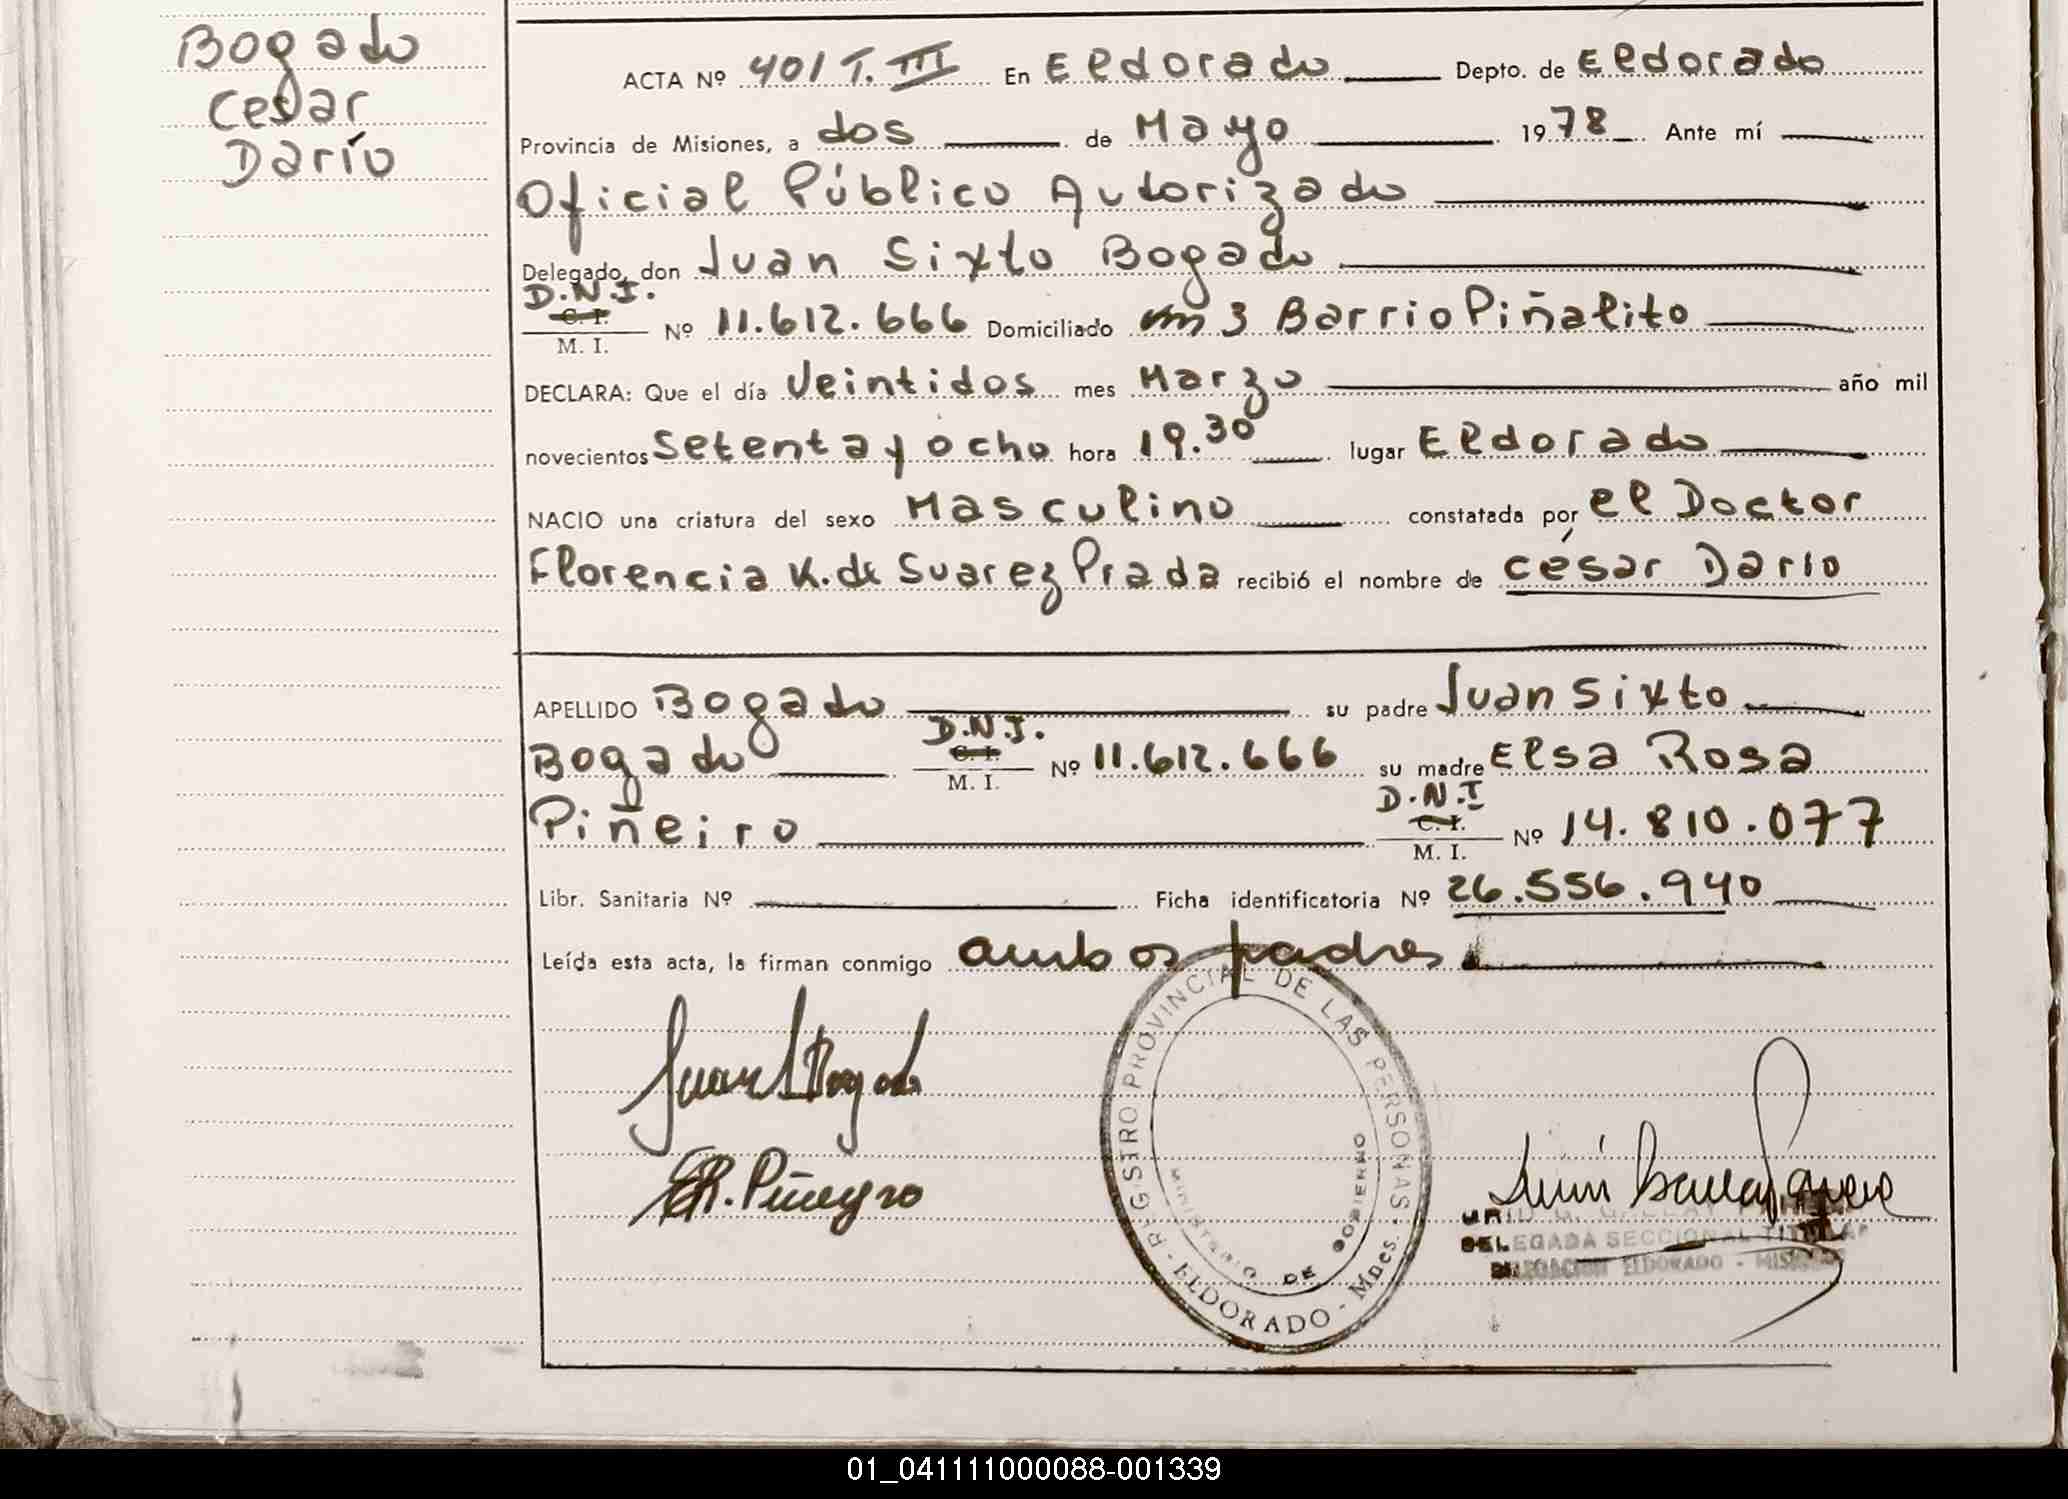 Bogado
Cesar
Darío
ACTA Nº 401 T. III En Eldorado Depto. de Eldorado
Provincia de Misiones, a dos de Mayo 1978 Ante mí
Oficial Público Autorizado
Delegado, don Juan Sixto Bogado
D.N.I.
C. I.
M. I.
Nº 11.612.666 Domiciliado km 3 Barrio Piñalito
DECLARA: Que el día Veintidos mes Marzo año mil
novecientos Setenta y ocho hora 19.30 lugar Eldorado
NACIO una criatura del sexo Masculino constatada por el Doctor
Florencia K. de Suarez Prada recibió el nombre de César Dario
APELLIDO Bogado su padre Juan Sixto
Bogado D.N.I. C. I. M. I. Nº 11.612.666 su madre Elsa Rosa
Piñeiro D.N.I C. I. M. I. Nº 14.810.077
Libr. Sanitaria Nº Ficha identificatoria Nº 26.556.940
Leída esta acta, la firman conmigo ambos padres
Juan S Bogado
ER. Piñeyro
REGISTRO PROVINCIAL DE LAS PERSONAS - ELDORADO - Mnes.
MINISTERIO DE GOBIERNO
DELEGADA SECCIONAL TITULAR
DELEGACION ELDORADO - MISIONES
01_041111000088-001339